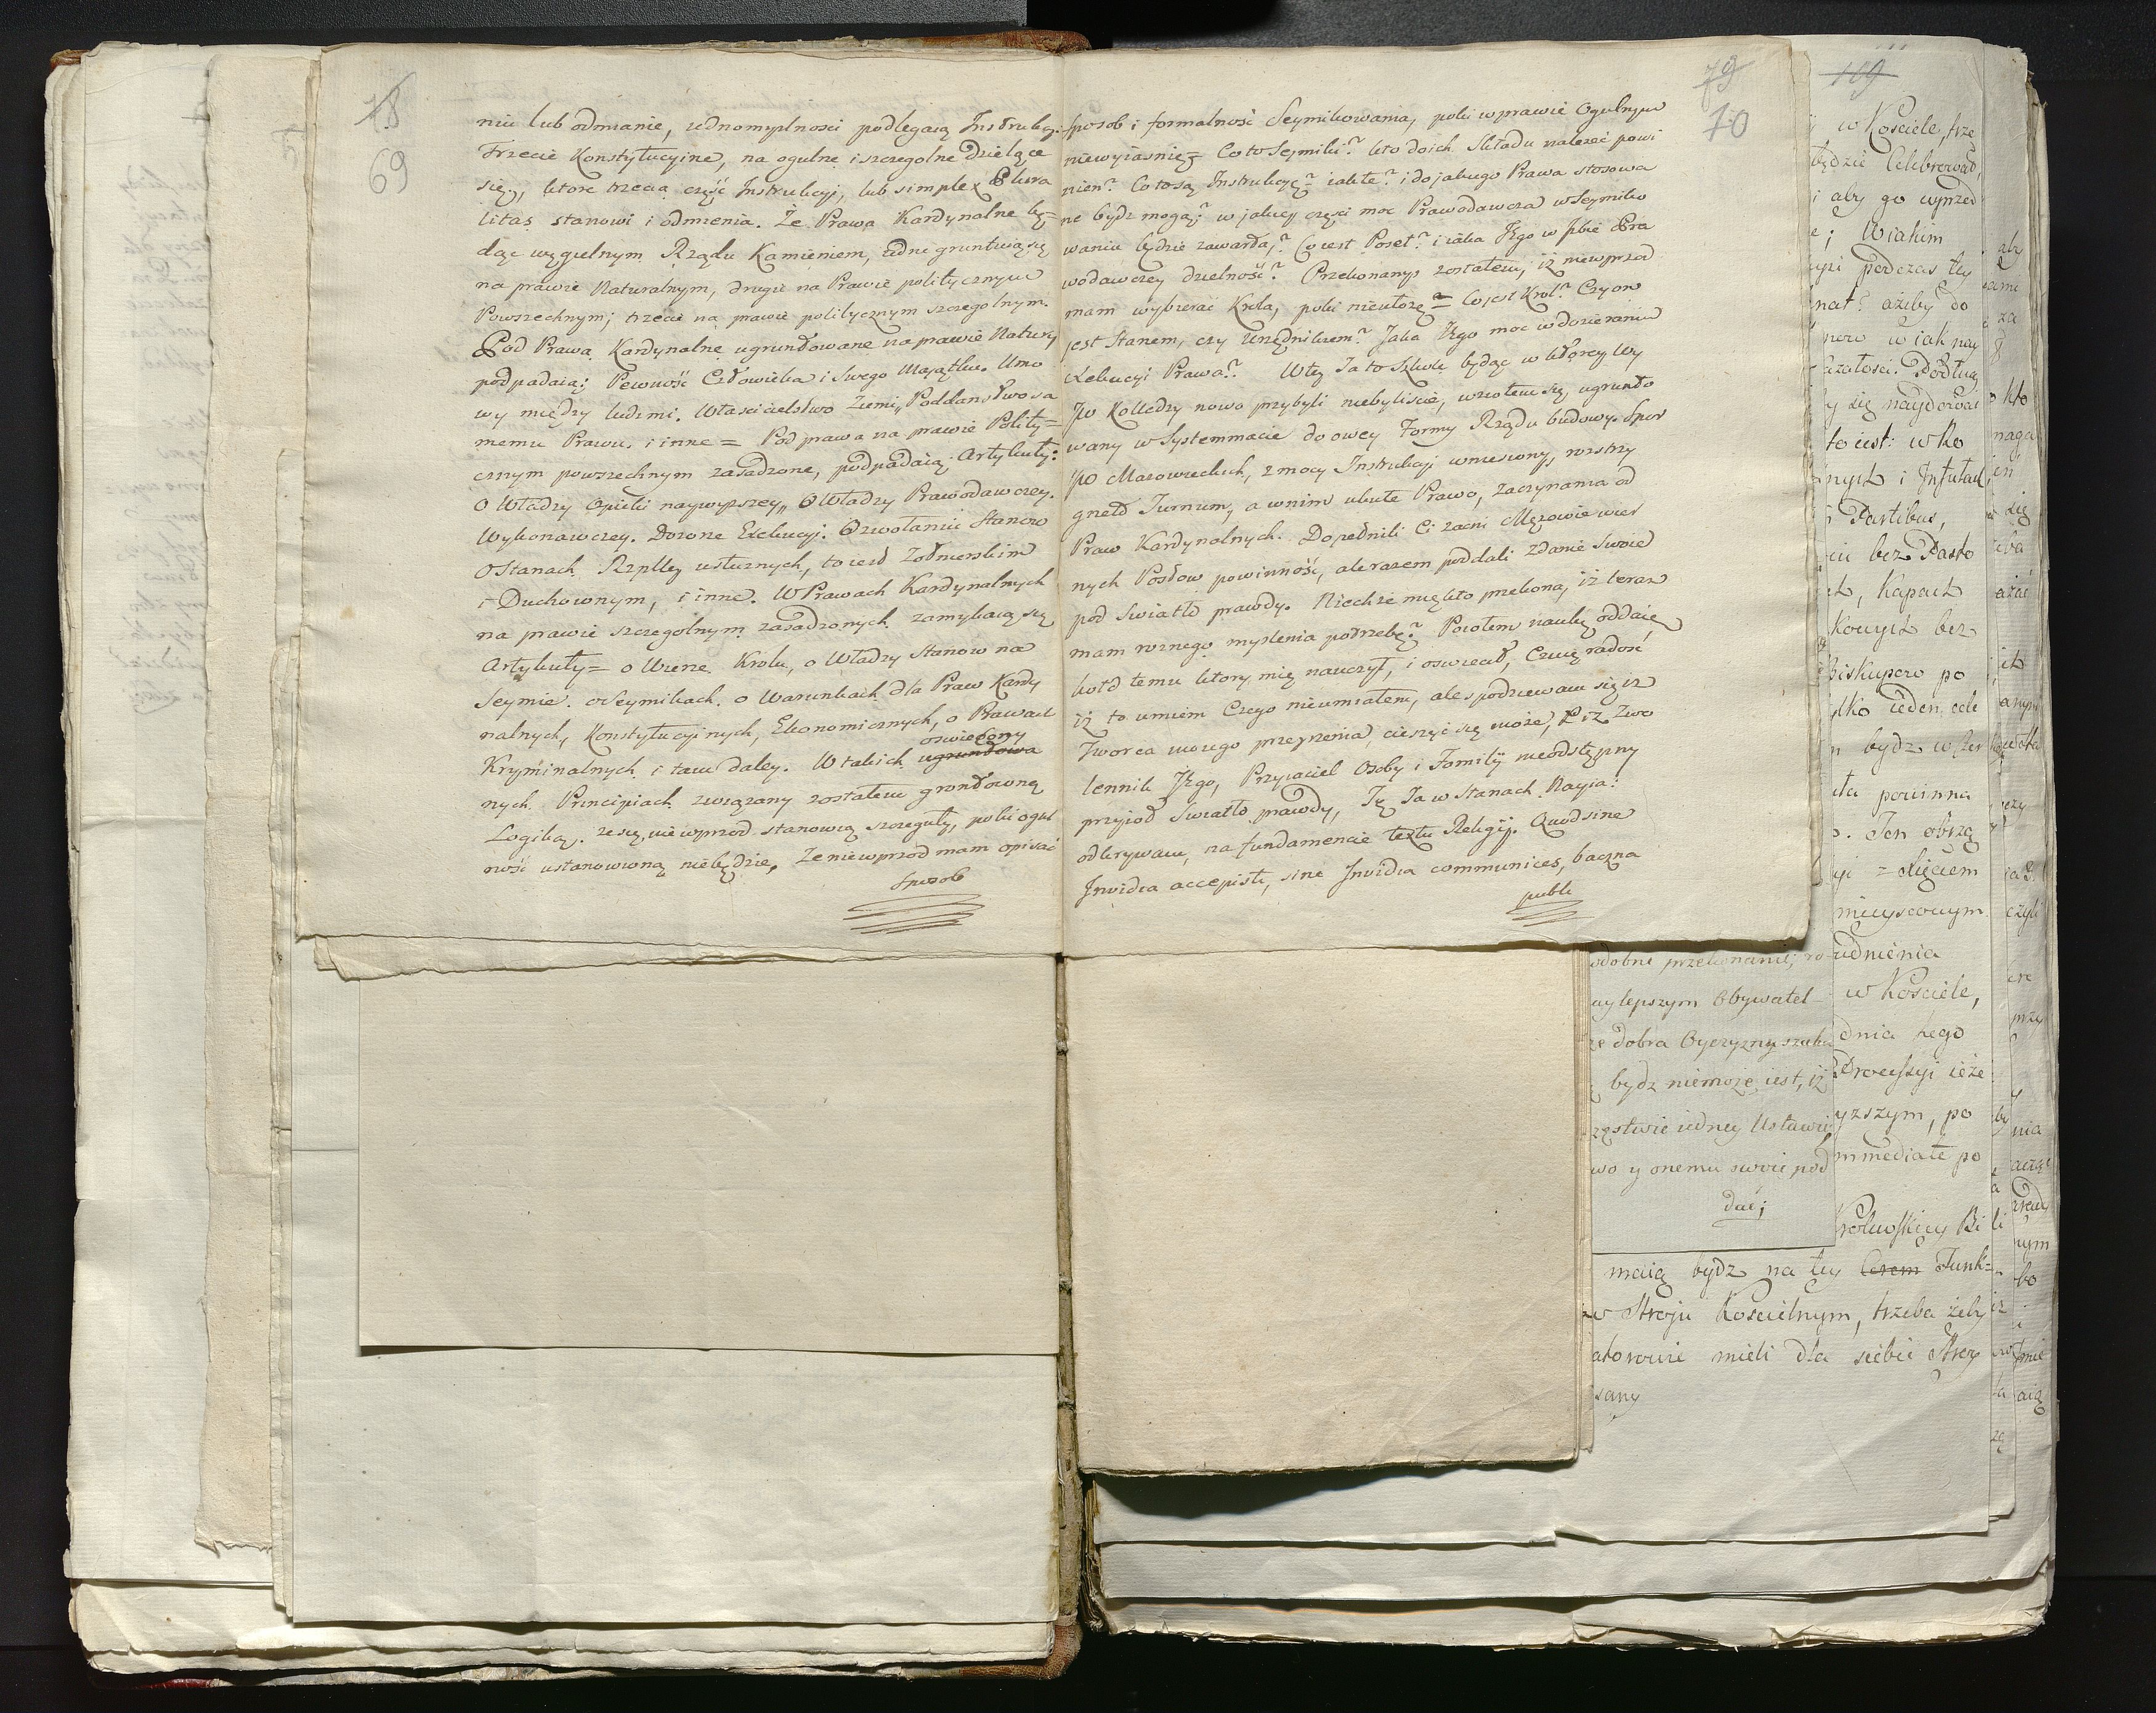 78
69
niu lub odmianie, jednomyslnosci podlegaią Instrukcy:
Trzecie Konstytucyine, na ogulne i szczegolne dzielące
się, ktore trzecia część Instrukcyi, lub simplex Plura
litas stanowi i odmienia. Że Prawa Kardynalne bę=
dąc węgielnym Rządu Kamieniem, iedne gruntuią się
na prawie Naturalnym, drugie na Prawie politycznym
Powszechnym; trzecie na prawie politycznym szczegolnym.
Pod Prawa Kardynalne ugrundowane na prawie Natury
podpadaią: Pewność Człowieka i Swego Maiątku. Umo
wy między ludzmi. Własicielstwo Ziemi, Poddanstwo sa
memu Prawu. i inne = Pod prawa na prawie Polity=
cznym powszechnym zasadzone, podpadaią Artykuły:
O Władzy Opieki naywyzszey, O Władzy Prawodawczey.
Wykonawczey. Dozorze Exekucyi. O zwołaniu Stanow
O Stanach Rzplley usłuznych, to iest Zołnierskim
i Duchownym, i inne. W Prawach Kardynalnych
na prawie szczegolnym zasadzonych zamykaią się
Artykuły = o Wierze Krolu, o Władzy Stanow na
Seymie. o Seymikach. o Warunkach dla Praw Kardy
nalnych, Konstytucyinych, Ekonomicznych, o Prawach
Kryminalnych i tam daley. W takich ugrundowa oswiecony
nych Principiach związany zostałem grondowną
Logiką. że się nie wprzod stanowią szczeguły, poki ogul
ność ustanowioną niebędzie, Że nie wprzod mam opisać
sposob
79
70
sposob i formalność Seymikowania, poki w prawie Ogulnym
niewyiasnię = Co to Seymiki? kto do ich Składu nalezeć powi
nien? Co to są Instrukcye? iakie? i do jakiego Prawa stosowa
ne bydz mogą? w jakiey części moc Prawodawcza w Seymiko
waniu będzie zawarta? Co iest Poseł? i iaka Jego w Izbie Pra
wodawczey dzielność? Przekonany zostałem, iż niewprzod
mam wybierać Krola, poki nieułożę = Co jest Krol? Czy on
jest Stanem, czy Urzędnikiem? Jaka Jego moc w dozieraniu
Exekucyi Prawa? W tey Ja to Szkole będąc w ktorey Wy
JW Kolledzy nowo przybyli niebyliscie, wzrołem się ugrunto
wany w Systemmacie do owey Formy Rządu budowy. Spor
JPo Mazowieckich, z mocy Instrukcyi wniesiony, rozstrzy
gnełd Turnum, a w nim ukute Prawo, Zaczynania od
Praw Kardynalnych. Dopełnili Ci zacni Mężowie wier
nych Posłow powinność, ale razem poddali Zdanie Swoie
pod Swiatło prawdy. Niechże mię kto przekona, iż teraz
mam roznego myslenia potrzebę? Pocołem naukę oddaię
hołd temu ktory mię nauczył, i oswiecał, Czuię radość
iż to umiem Czego nieumiałem, ale spodziewam się iz
Tworca mojego przeyrzenia, cieszyć się może, Iż Zwo
lennik Jego, Przyiaciel Osoby i Familij nieodstępny
przyioł Swiatło prawdy, Tę Ja w Stanach Racya:
odkrywam, na fundamencie textu Religij. Quod sine
Invidia accepisti, sine Invidia communices, baczna
publi
odobne przekonanie, ro
ay lepszym Obywatel
że dobra Oyczyzny szuka
bydz niemoże iest, iż
zęstwie iedney Ustawie
wo y onemu swoie pod
dać;
169
w Kosciele, prze
będzie Celebrował,
i aby go wprzed
e; Wiakim
podczas tey
nat? ażeby do
w iak nay
czałosci. Podług
y się nayduwać
to iest: w Ko
nych i Infułach
Partibus,
ciu bez Pasto
Kapach
Kowych bez
Biskupow po
ylko ieden cele
bydz w
powinna
. Ten obrzą
= oligciem
mieyscowym
udnienia
w Kosciele,
dnia tego
Processyi ieże
yzszym, po
mmediate po
krolewskiey Bi
maią bydz na tey Cerem Funk=
w Stroju Koscielnym, trzeba żeby
atorowie mieli dla siebie Strzę
sany